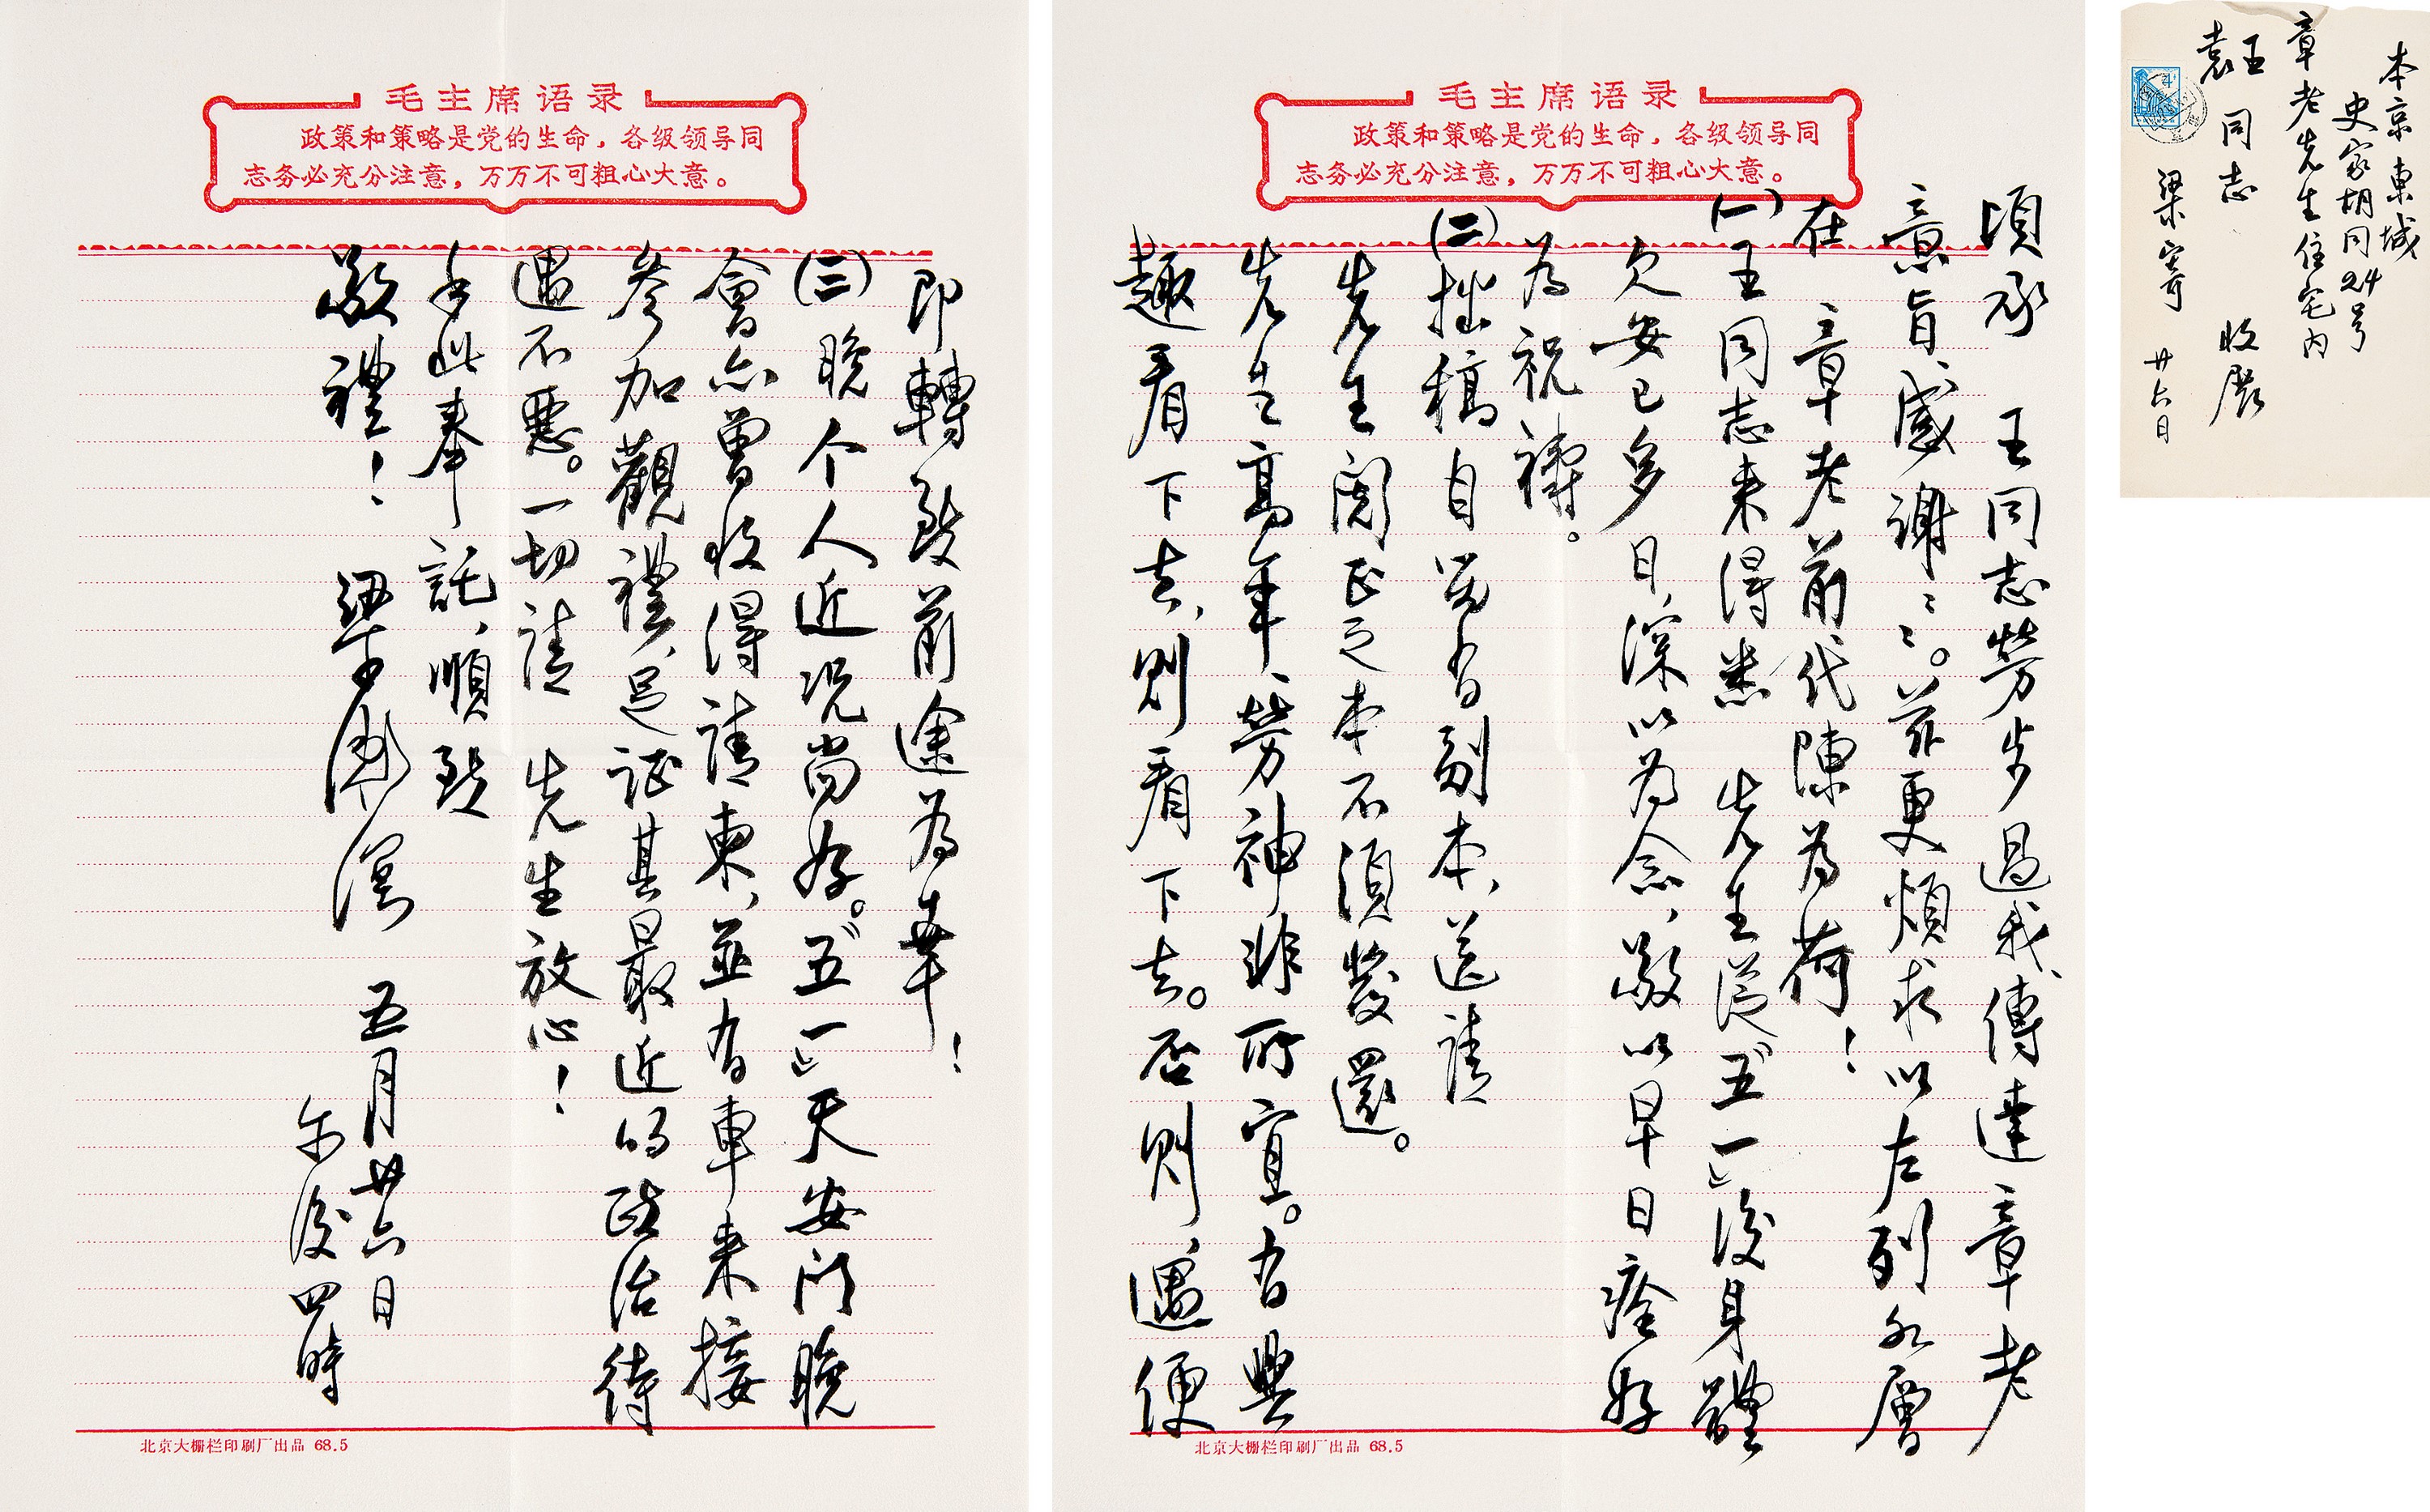 本京東城
史家胡同24号
章老先生住宅内
王
袁
同志
收啟
梁寄
廿六日
毛主席语录
政策和策略是党的生命，各级领导同
志务必充分注意，万万不可粗心大意。
頃承　王同志勞步過我、傳達章老
意旨、感謝〻〻。茲更煩求以左列各層
在　章老前代陳為荷！
(一)王同志来得悉　先生從“五一”後身體
欠安已多日，深以為念，敬以早日痊好
為祝禱。
(二)拙稿自留有副本，送請
先生閱正之本不須發還。
先生高年、勞神非所宜。有興
趣看下去，則看下去。否則，遇便
北京大栅栏印刷厂出品 68.5
毛主席语录
政策和策略是党的生命，各级领导同
志务必充分注意，万万不可粗心大意。
即轉致前途為幸！
(三)晚个人近况尚好。“五一”天安门晚
會亦曾收得請柬，並有車来接
参加觀禮，足证其最近的政治待
遇不惡。一切請　先生放心！
手此奉託，順致
敬禮！　梁漱溟　五月廿六日
午後四時
北京大栅栏印刷厂出品 68.5